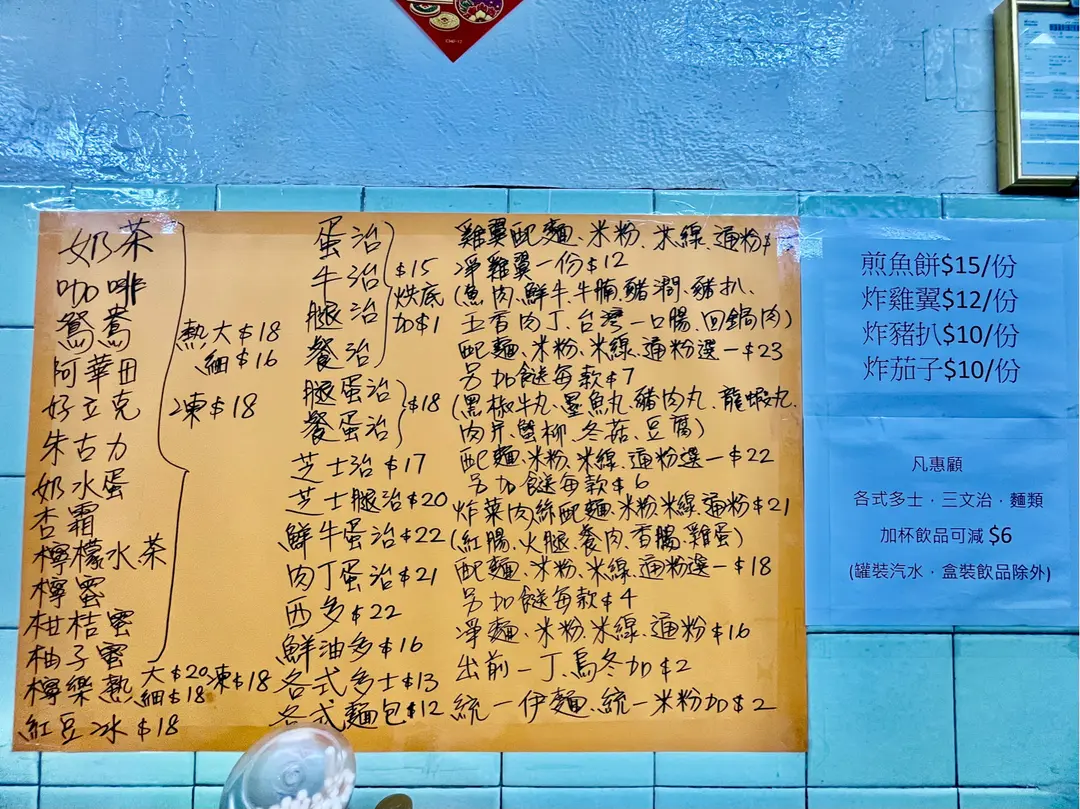 奶茶
咖啡
鴛鴦
阿華田
好立克
朱古力
奶水蛋
杏霜
檸檬水茶
檸蜜
柑桔蜜
柚子蜜
熱大$18
細$16
凍$18
檸樂熱大$20凍$18
細$18
紅豆冰$18
蛋治
牛治
腿治
餐治
$15
烘底
加$1
腿蛋治
餐蛋治
$18
芝士治$17
芝士腿治$20
鮮牛蛋治$22
肉丁蛋治$21
西多$22
鮮油多$16
各式多士$13
各式麵包$12
雞翼配麵、米粉、米線、通粉$
淨雞翼一份$12
(魚肉、鮮牛、牛腩、豬潤、豬扒、
五香肉丁、台灣一口腸、回鍋肉)
配麵、米粉、米線、通粉選一$23
另加餸每款$7
(黑椒牛丸、墨魚丸、豬肉丸、龍蝦丸、
肉片、蟹柳、冬菇、豆腐)
配麵、米粉、米線、通粉選一$22
另加餸每款$6
炸菜肉絲配麵、米粉米線、通粉$21
(紅腸、火腿、餐肉、香腸、雞蛋)
配麵、米粉、米線、通粉選一$18
另加餸每款$4
淨麵、米粉、米線、通粉$16
出前一丁、烏冬加$2
統一伊麵、統一米粉加$2
煎魚餅$15/份
炸雞翼$12/份
炸豬扒$10/份
炸茄子$10/份
凡惠顧
各式多士，三文治，麵類
加杯飲品可減 $6
(罐裝汽水，盒裝飲品除外)